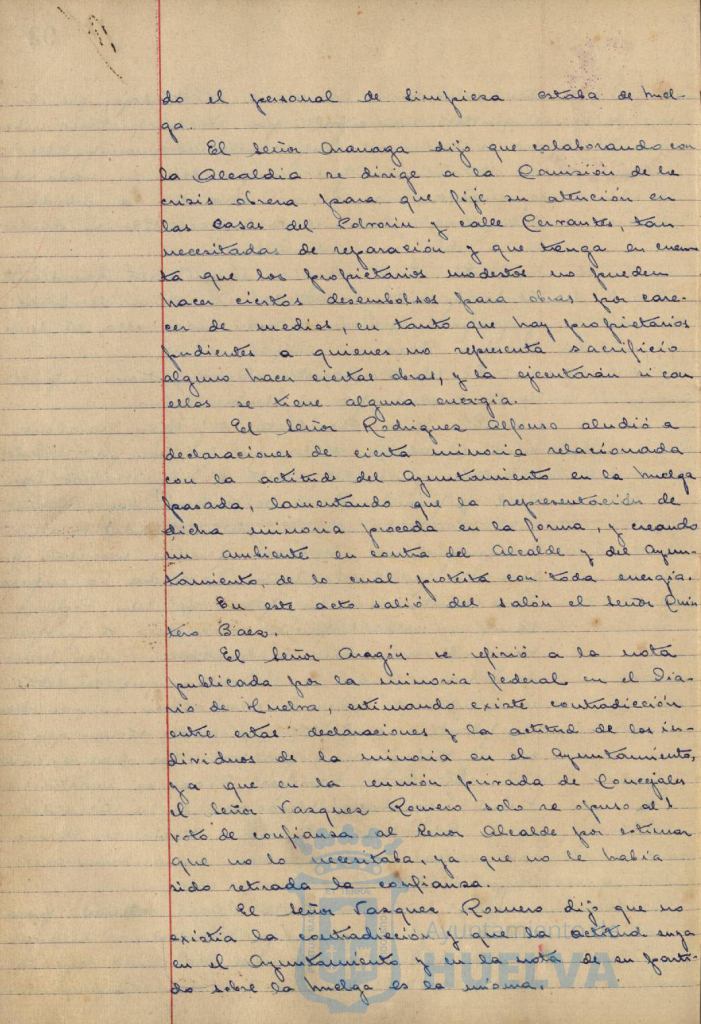 do el personal de limpieza estaba de huel-
ga.
El Señor Aranaga dijo que colaborando con
la Alcaldia se dirige a la Comisión de la
crisis obrera para que fije su atención en
las casas del y calle Cervantes, tan
necesitadas de reparación y que tenga en cuen-
ta que los propietarios modestos no pueden
hacer ciertos desembolsos para obras por care-
cer de medios, en tanto que hay propietarios
pudientes a quienes no representa sacrificio
alguno hacer ciertas obras, y la ejecutarán si con
ellos se tiene alguna energia.
El Señor Rodriguez Alfonso aludió a
declaraciones de cierta minoria relacionada
con la actitud del Ayuntamiento en la huelga
pasada, lamentando que la representación de
dicha minoria proceda en la forma, y creando
un ambiente en contra del Alcalde y del Ayun-
tamiento, de lo cual protesta con toda energia.
En este acto salió del salón el Señor Quin
tero Baez.
El Señor Aragón se refirió a la nota
publicada por la minoria federal en el Dia-
rio de Huelva, estimando existe contradicción
entre estas declaraciones y la actitud de los in-
dividuos de la minoria en el Ayuntamiento,
ya que en la reunión privada de Concejales
el Señor Vazquez Romero solo se opuso al
voto de confianza al Señor Alcalde por estimar
que no lo necesitaba, ya que no le habia
sido retirada la confianza.
El Señor Vazquez Romero dijo que no
existia la contradicción y que la actitud suya
en el Ayuntamiento y en la nota de su parti-
do sobre la huelga es la misma.
Ayuntamiento de
HUELVA